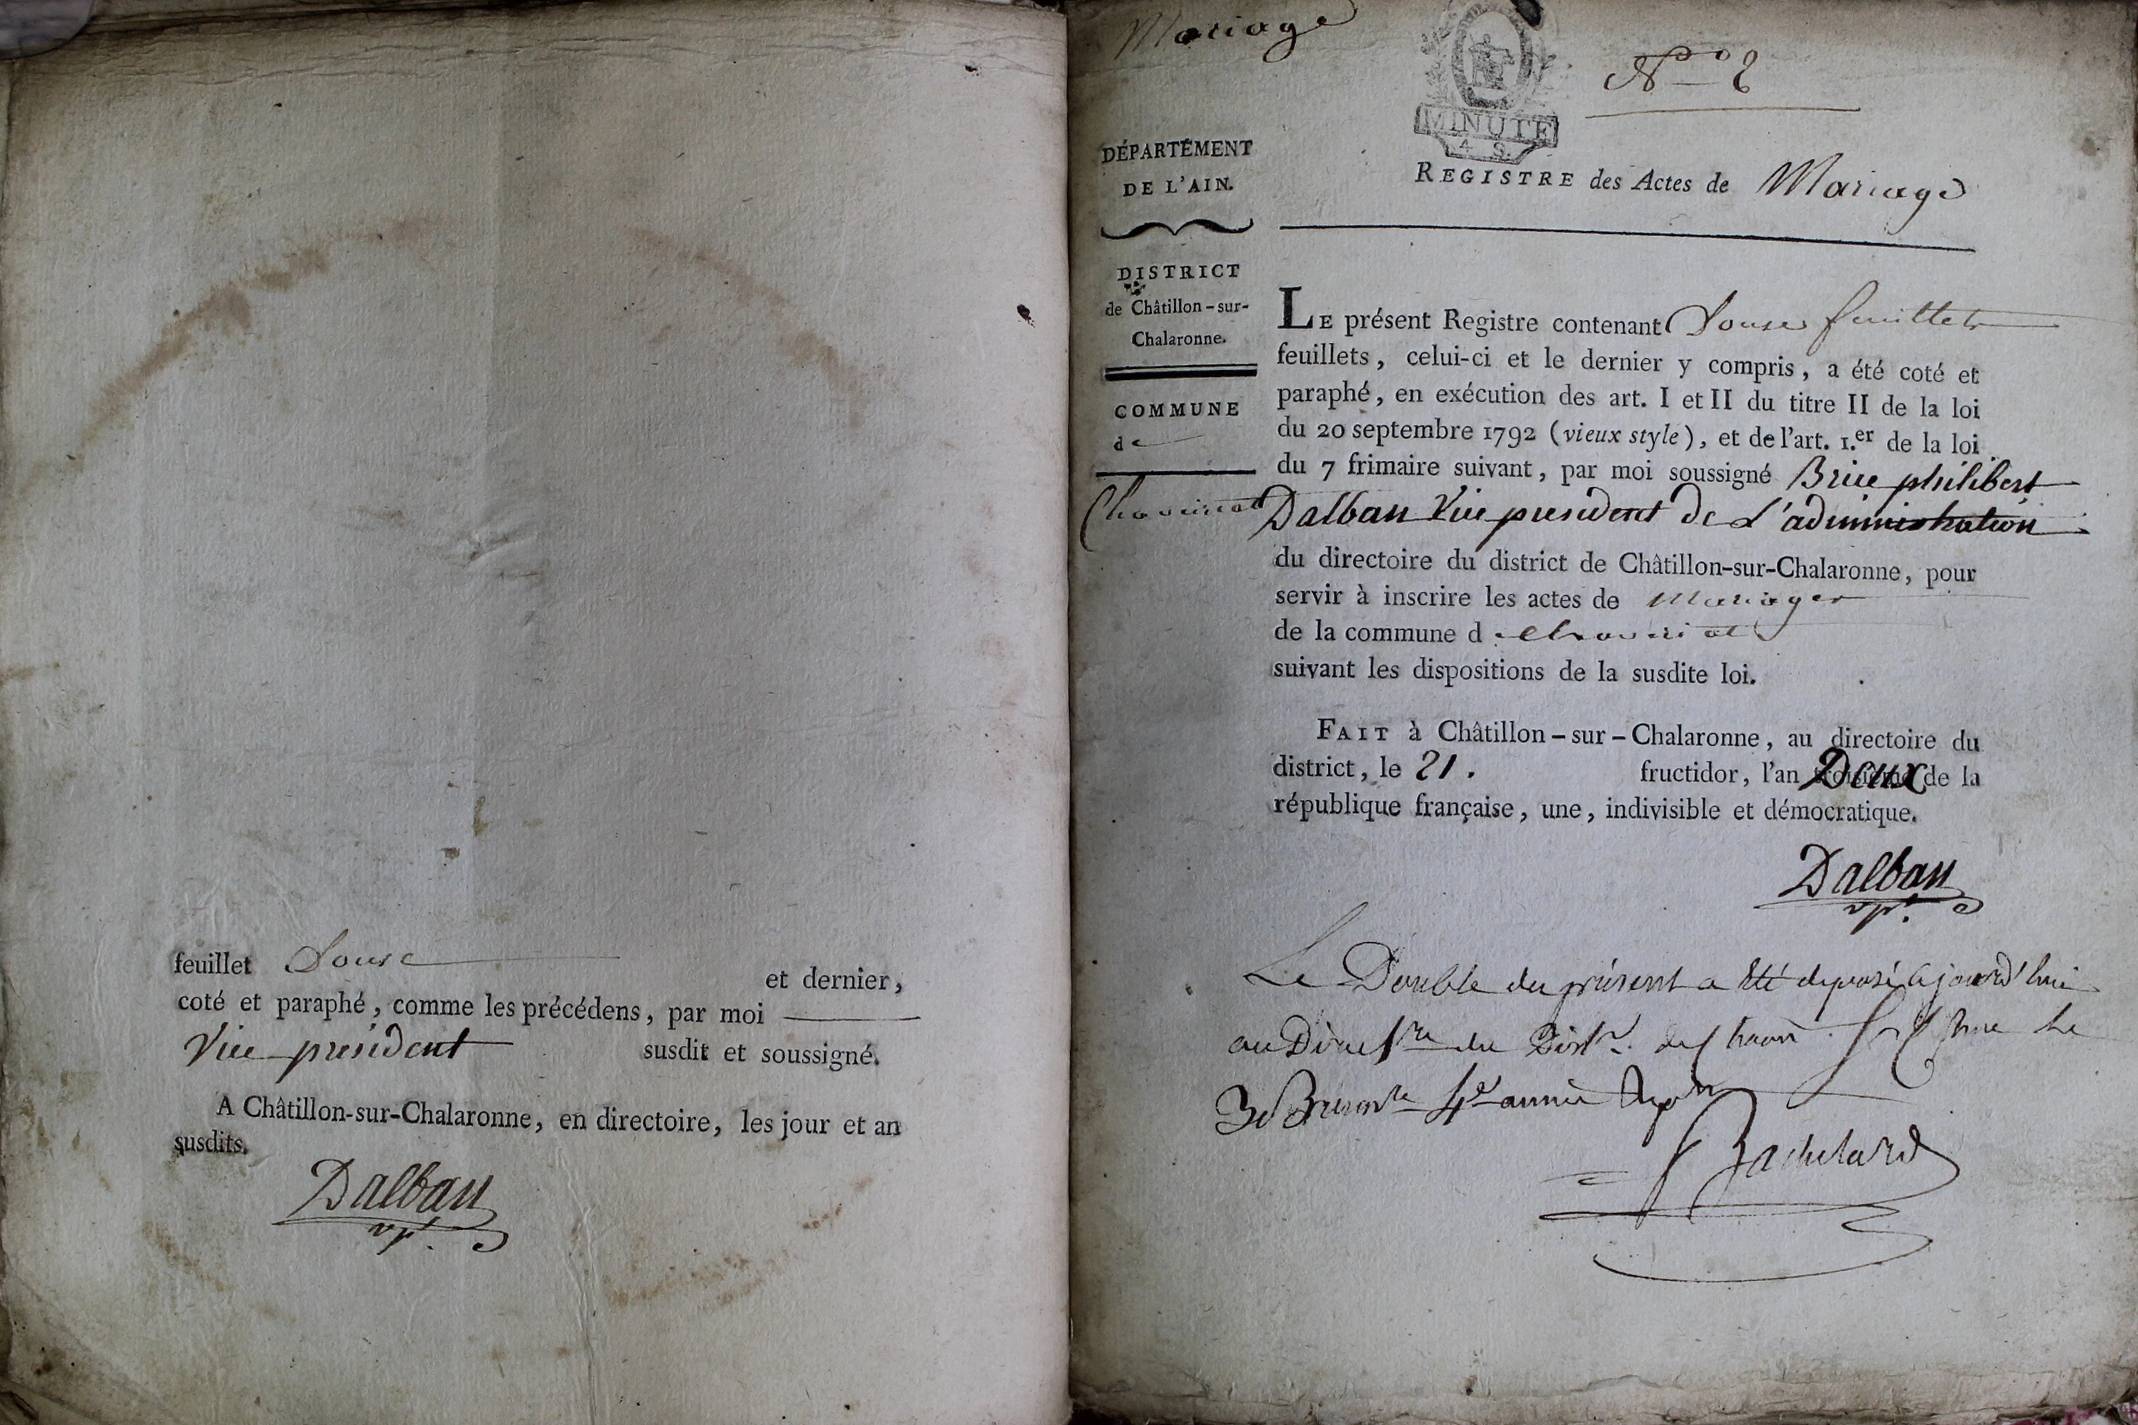 feuillet Douse et dernier,
coté et paraphé, comme les précédens, par moi
Vice president susdit et soussigné.
A Châtillon-sur-Chalaronne, en directoire, les jour et an
susdits.
Dalban
vpt.
Mariage
MINUTE
4 S.
N°
DÉPARTEMENT
DE L'AIN.
REGISTRE des Actes de Mariage
DISTRICT
de Châtillon-sur-
Chalaronne.
COMMUNE
de
Chaveriat
LE présent Registre contenant Douse feuillets
feuillets, celui-ci et le dernier y compris, a été coté et
paraphé, en exécution des art. I et II du titre II de la loi
du 20 septembre 1792 (vieux style), et de l'art. 1.er de la loi
du 7 frimaire suivant, par moi soussigné Brice philibert
Dalban Vice president de L'administration
du directoire du district de Châtillon-sur-Chalaronne, pour
servir à inscrire les actes de mariages
de la commune de chaveriat
suivant les dispositions de la susdite loi.
FAIT à Châtillon-sur-Chalaronne, au directoire du
district, le 21. fructidor, l'an Deux de la
république française, une, indivisible et démocratique.
Dalban
vpt.
Le Double du présent a été deposé ajourd'hui
au Direct.re du Distr. de
4e année